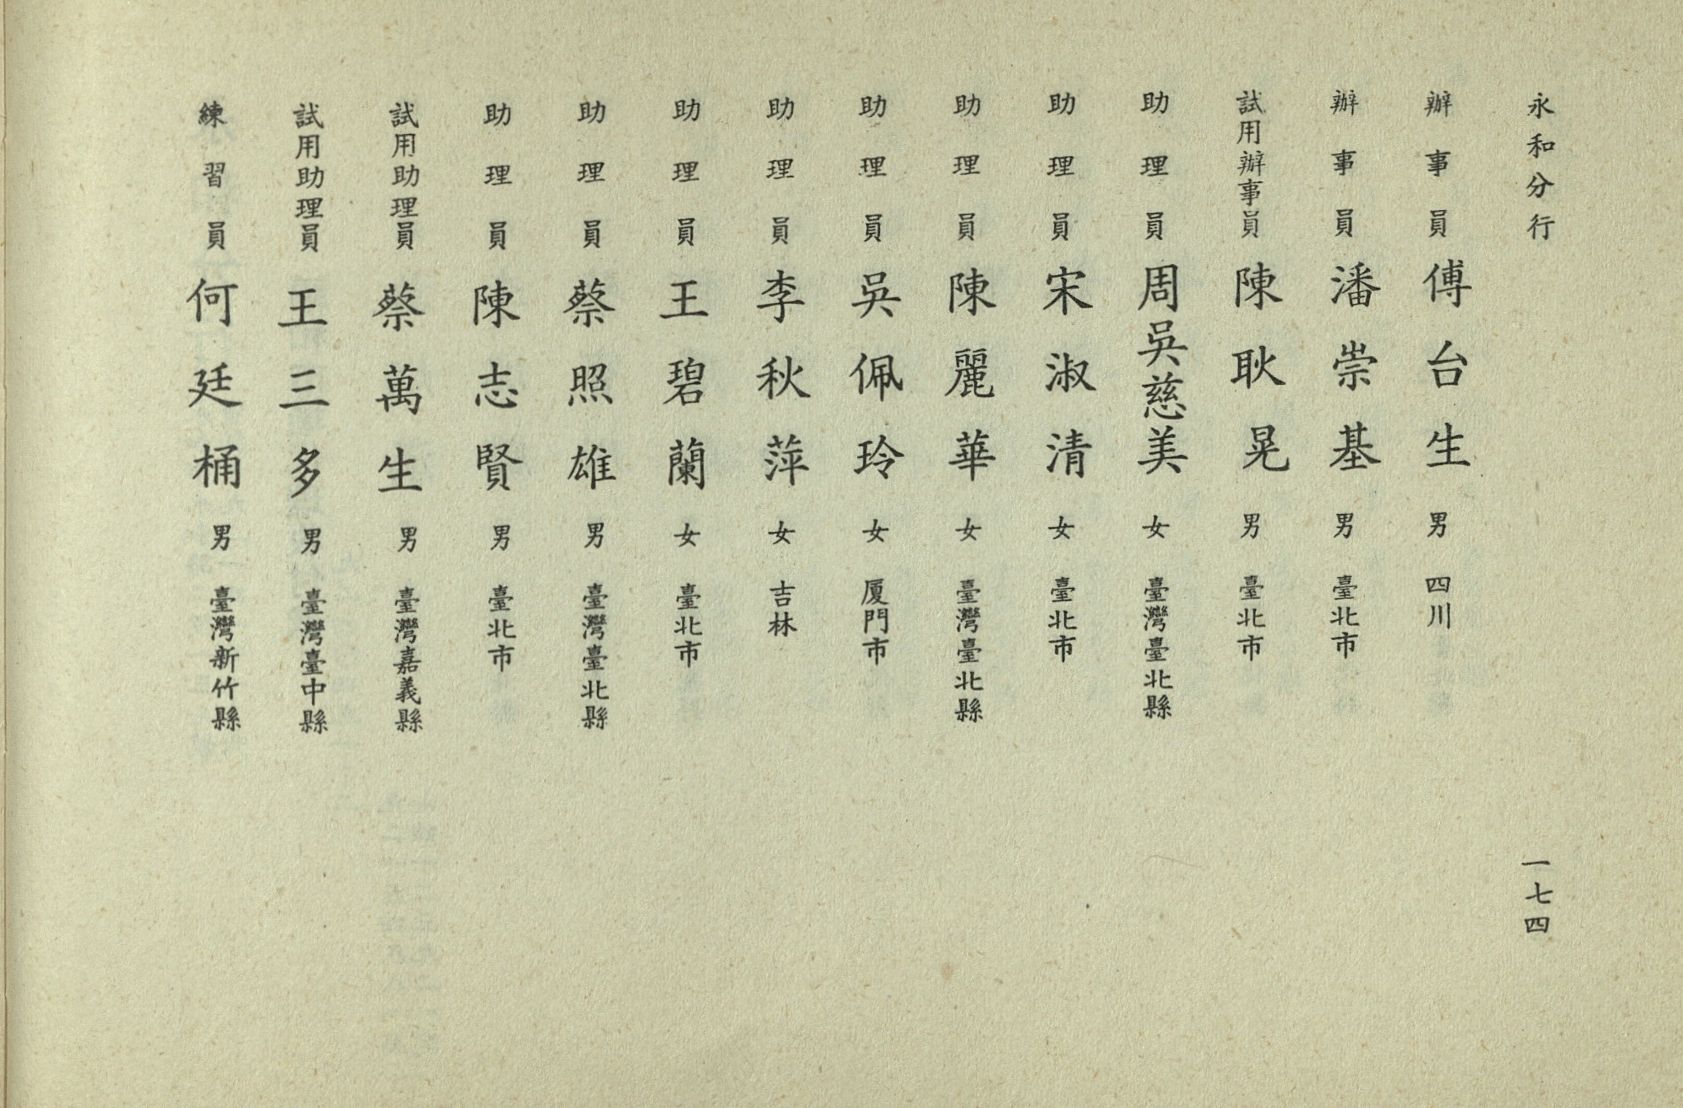 永和分行
辦事員 傅台生 男 四川
辦事員 潘崇基 男 臺北市
試用辦事員 陳耿晃 男 臺北市
助理員 周吳慈美 女 臺灣臺北縣
助理員 宋淑清 女 臺北市
助理員 陳麗華 女 臺灣臺北縣
助理員 吳佩玲 女 厦門市
助理員 李秋萍 女 吉林
助理員 王碧蘭 女 臺北市
助理員 蔡照雄 男 臺灣臺北縣
助理員 陳志賢 男 臺北市
試用助理員 蔡萬生 男 臺灣嘉義縣
試用助理員 王三多 男 臺灣臺中縣
練習員 何廷桶 男 臺灣新竹縣
一七四